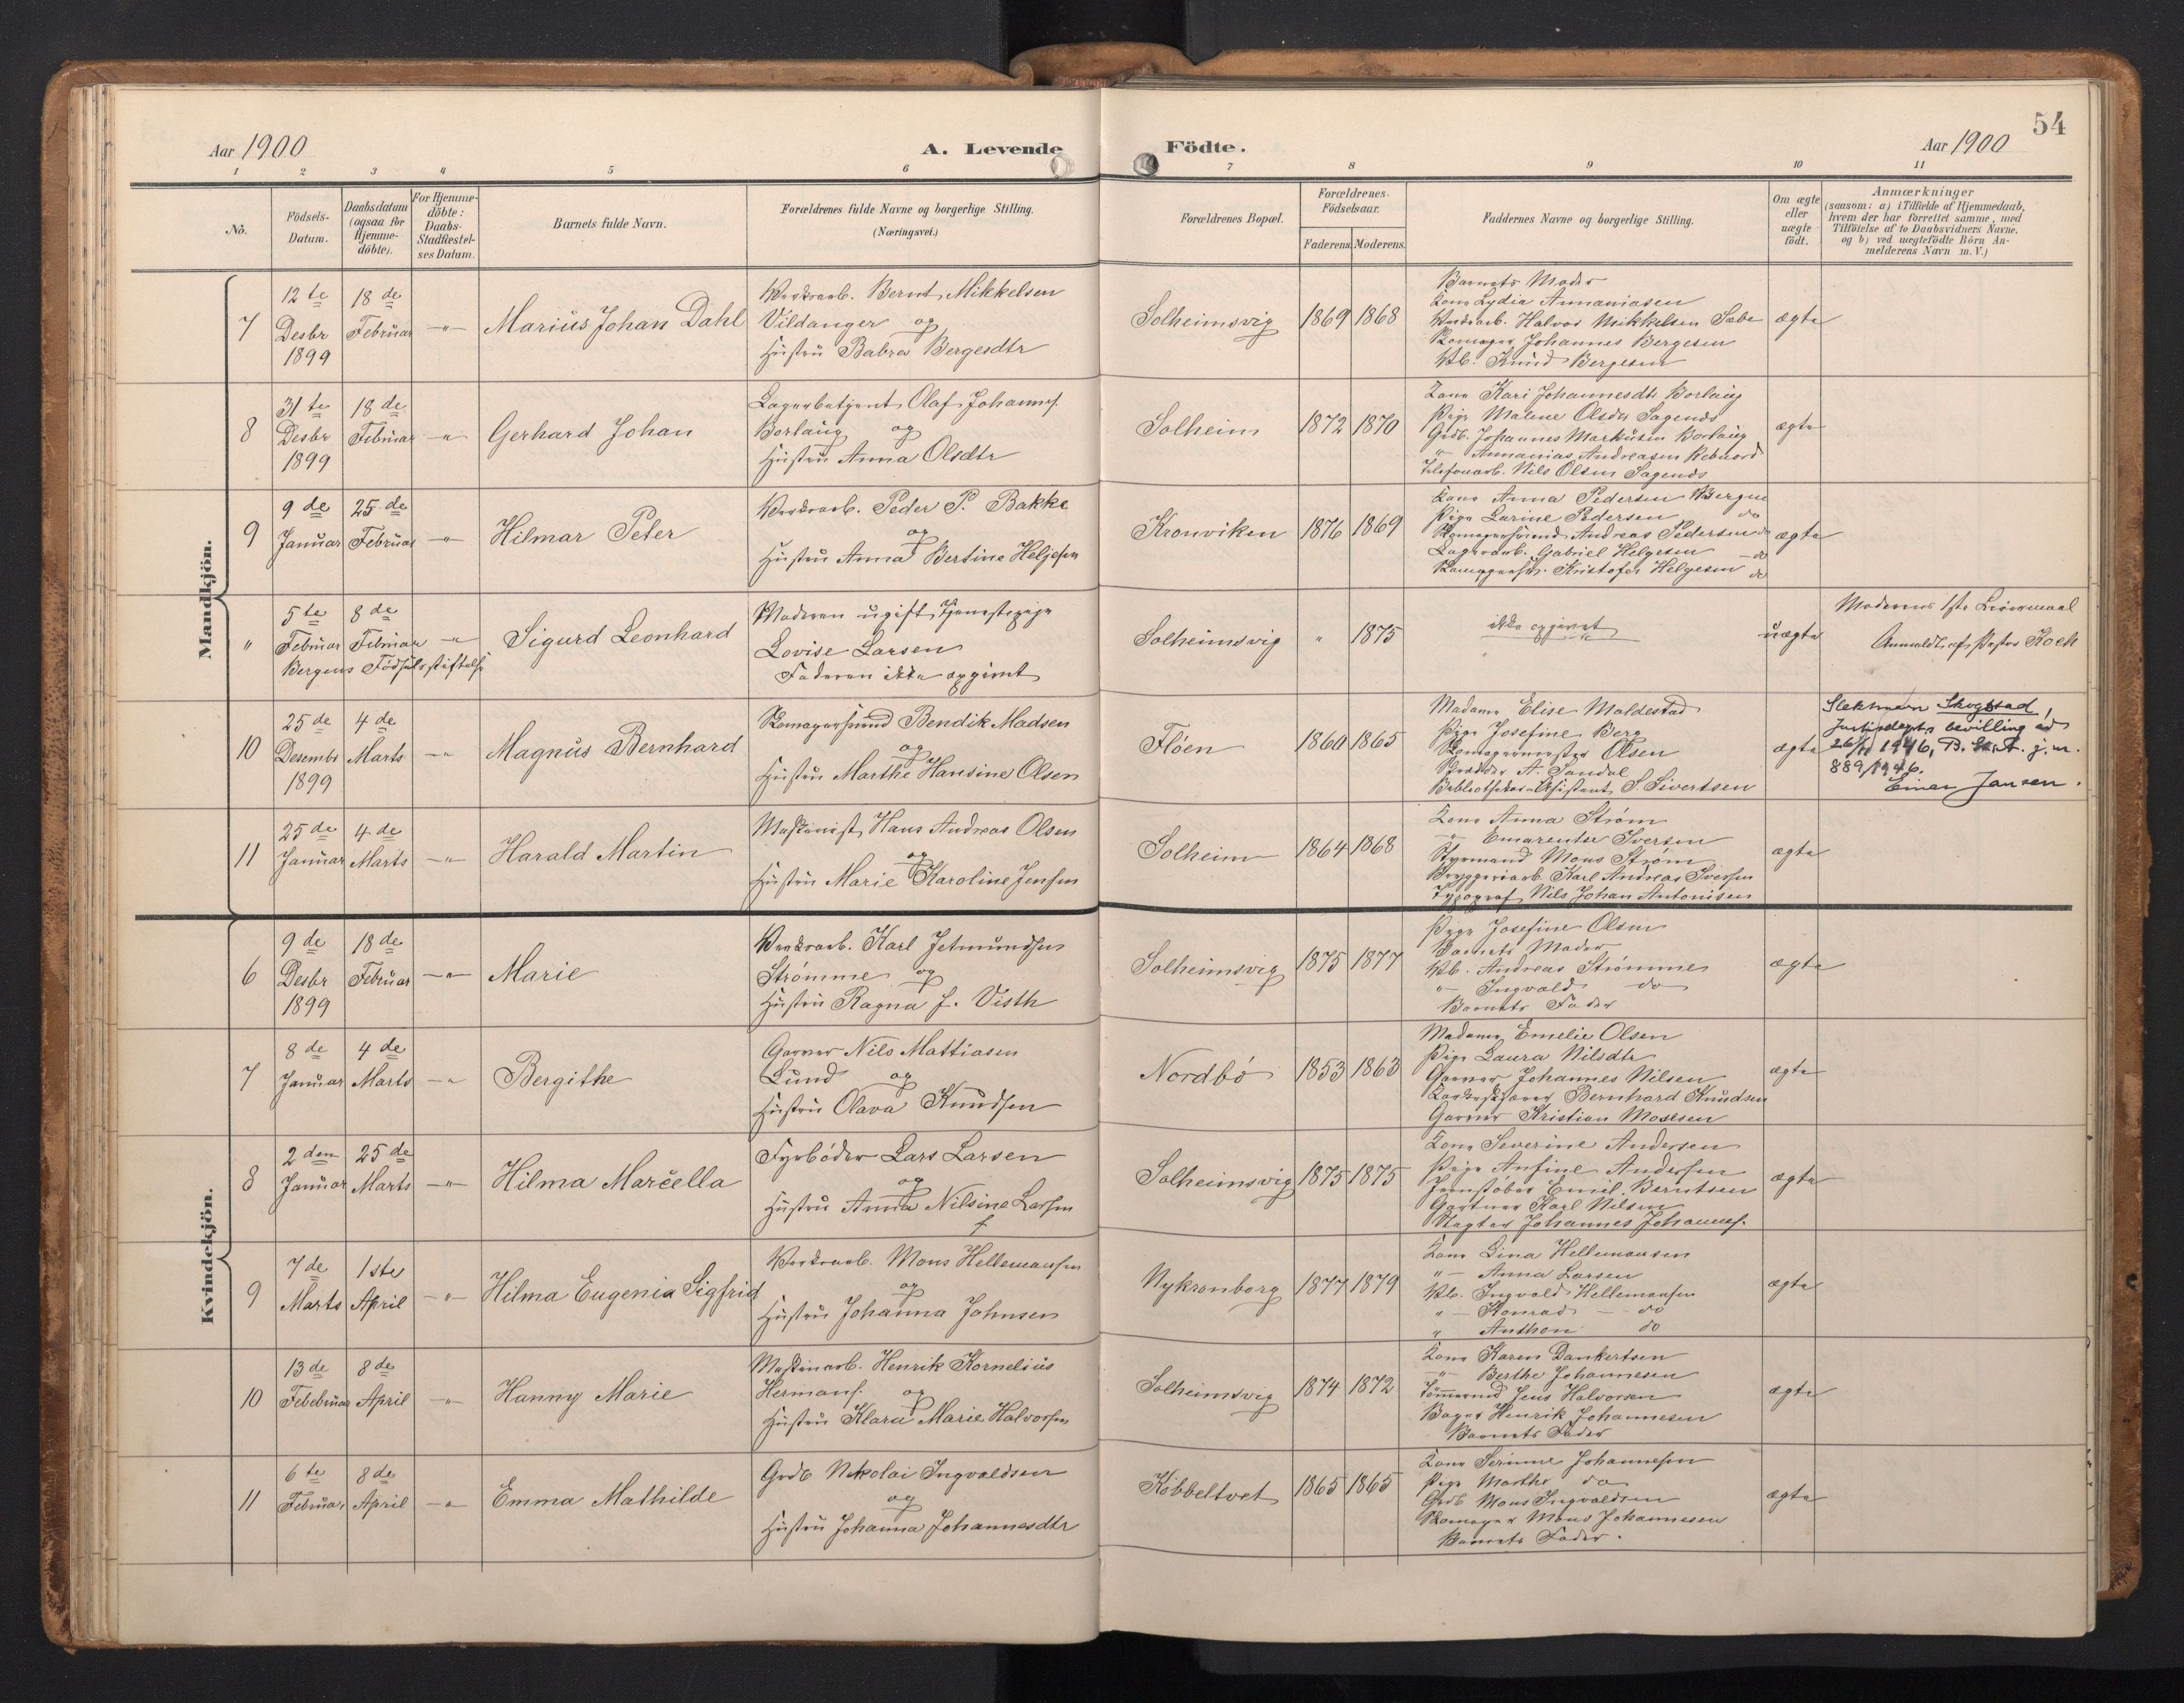 54
Aar 1900
A. Levende
Födte.
Aar 1900
1 2 3 4 5 6 7 8 9 10 11
No.
Födsels-
Datum.
Daabsdatum
(ogsaa for
Hjemme-
döbte).
For Hjemme-
döbte:
Daabs-
Stadfæstel-
ses Datum.
Barnets fulde Navn.
Forældrenes fulde Navne og borgerlige Stilling.
(Næringsvei.)
Forældrenes Bopæl.
Forældrenes
Födselsaar.
Faderens. Moderens.
Faddernes Navne og borgerlige Stilling.
Om ægte
eller
uægte
födt.
Anmærkninger
(saasom: a) i Tilfælde af Hjemmedaab,
hvem der har forrettet samme, med
Tilföielse af to Daabsvidners Navne,
og b) ved uægtefödte Börn An-
melderens Navn m. V.)
Mandkjön.
7
12te
Desbr
1899
18de
Februar
Marius Johan Dahl
Verksarb. Bernt Mikkelsen
Vildanger og
Hustru Babra Bergesdtr
Solheimsvig
1869 1868
Barnets Moder
Kone Lydia Annaniasen
Verksarb. Halvor Mikkelsen Sæbø
Skomager Johannes Bergesen
Vb. Knud Bergesen
ægte
8
31te
Desbr
1899
18de
Februar
Gerhard Johan
Lagerbetjent Olaf Johannes.
Borlaug og
Hustru Anna Olsdtr
Solheim
1872 1870
Kone Kari Johannesdtr Borlaug
Pige Malene Olsdtr Sagends
Grdb. Johannes Markusen Borlaug
" Annanias Andreasen
Telefonarb. Nils Olsen Sagends
ægte
9
9de
Januar
25de
Februar
Hilmar Peter
Verksarb. Peder P. Bakke
og
Hustru Anna Bertine Helgesen
Kronviken
1876 1869
Kone Anna Pedersen Bergen
Pige Larine Pedersen do
Skomagersvend Andreas Pedersen do
Lagerarb. Gabriel Helgesen do
Kristofer Helgesen do
ægte
"
5te
Februar
8de
Februar
Bergens Födselsstiftelse
Sigurd Leonhard
Moderen ugift Tjenestepige
Lovise Larsen
Faderen ikke opgivet
Solheimsvig
" 1875
ikke opgivet
uægte
Moderens 1ste Leiermaal
Anmeldt af Pastor Koch
10
25de
Desembr
1899
4de
Marts
Magnus Bernhard
Skomagersvend Bendik Madsen
og
Hustru Marthe Hansine Olsen
Flöen
1860 1865
Madame Elise Maldestad
Pige Josefine Berg
Skomagermester Olsen
Skrædder A. Sandal
Bibliothekar-Assistent S. Sivertsen
ægte
Slektsnavn Skogstad,
Justisdepts bevilling ad
26/11 1946, B. St. A. j.nr.
889/1946.
Einar Jansen.
11
25de
Januar
4de
Marts
Harald Martin
Maskinist Hans Andreas Olsen
og
Hustru Marie Karoline Jensen
Solheim
1864 1868
Kone Anna Ström
" Emarentse Iversen
Styrmand Mons Ström
Bryggeriarb. Karl Andreas Iversen
Typograf Nils Johan Antonisen
ægte
Kvindekjön.
6
9de
Desbr
1899
18de
Februar
Marie
Verksarb. Karl Jetmundsen
Strömme og
Hustru Ragna f. Visth
Solheimsvig
1875 1877
Pige Josefine Olsen
Barnets Moder
Vb. Andreas Strömme
" Ingvald do
Barnets Fader
ægte
7
8de
Januar
4de
Marts
Bergithe
Garver Nils Mattiasen
Lund og
Hustru Olava Knudsen
Nordbö
1853 1863
Madame Emelie Olsen
Pige Laura Nilsdtr
Garver Johannes Nilsen
Bernhard Knudsen
Garver Kristian Mossen
ægte
8
2den
Januar
25de
Marts
Hilma Marcella
Fyrböder Lars Larsen
og
Hustru Anna Nilsine Larsen
f
Solheimsvig
1875 1875
Kone Severine Andersen
Pige Anfine Andersen
Jernstöber Emil Berntsen
Gartner Karl Nilsen
Slagter Johannes Johannes.
ægte
9
7de
Marts
1ste
April
Hilma Eugenia Sigfrid
Verksarb. Mons Hellemansen
og
Hustru Johanna Johnsen
Nykronborg
1877 1879
Kone Lina Hellemansen
" Anna Larsen
Vb. Ingvald Hellemansen
" Konrad do
" Anthon do
ægte
10
13de
Febebruar
8de
April
Hanny Marie
Maskinarb. Henrik Kornelius
Hermans. og
Hustru Klara Marie Halvorsen
Solheimsvig
1874 1872
Kone Karen Dankertsen
" Berthe Johannesen
Tömmermd Jens Halvorsen
Bager Henrik Johannesen
Barnets Fader
ægte
11
6te
Februar
8de
April
Emma Mathilde
Grdb Nikolai Ingvaldsen
og
Hustru Johanna Johannesdtr
Köbbeltvet
1865 1865
Kone Serine Johannesen
Pige Marthe do
Grdb Mons Ingvaldsen
Skomager Mons Johannesen
Barnets Fader.
ægte